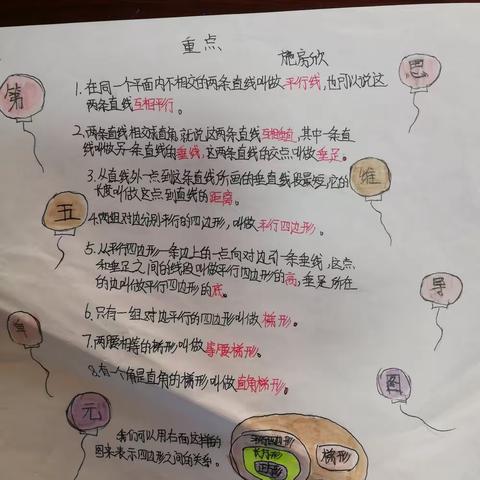 重点
施秀欣
第
五
单
元
思
维
导
图
1.在同一个平面内不相交的两条直线叫做平行线,也可以说这
两条直线互相平行。
2.两条直线相交成直角,就说这两条直线互相垂直,其中一条直
线叫做另一条直线的垂线,这两条直线的交点叫做垂足。
3.从直线外一点到这条直线所画的垂直线段最短,它的
长度叫做这点到直线的距离。
4.两组对边分别平行的四边形,叫做平行四边形。
5.从平行四边形一条边上的一点向对边引一条垂线,这点
和垂足之间的线段叫做平行四边形的高,垂足所在
的边叫做平行四边形的底。
6.只有一组对边平行的四边形叫做梯形。
7.两腰相等的梯形叫做等腰梯形。
8.有一个角是直角的梯形叫做直角梯形。
我们可以用右面这样的
图来表示四边形之间的关系。
平行四边形
长方形
正方形
梯形